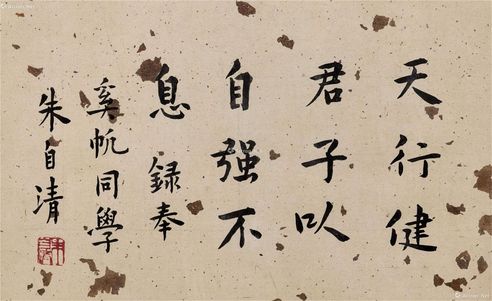 天行健
君子以
自强不
息録奉
奚帆同學
朱自清